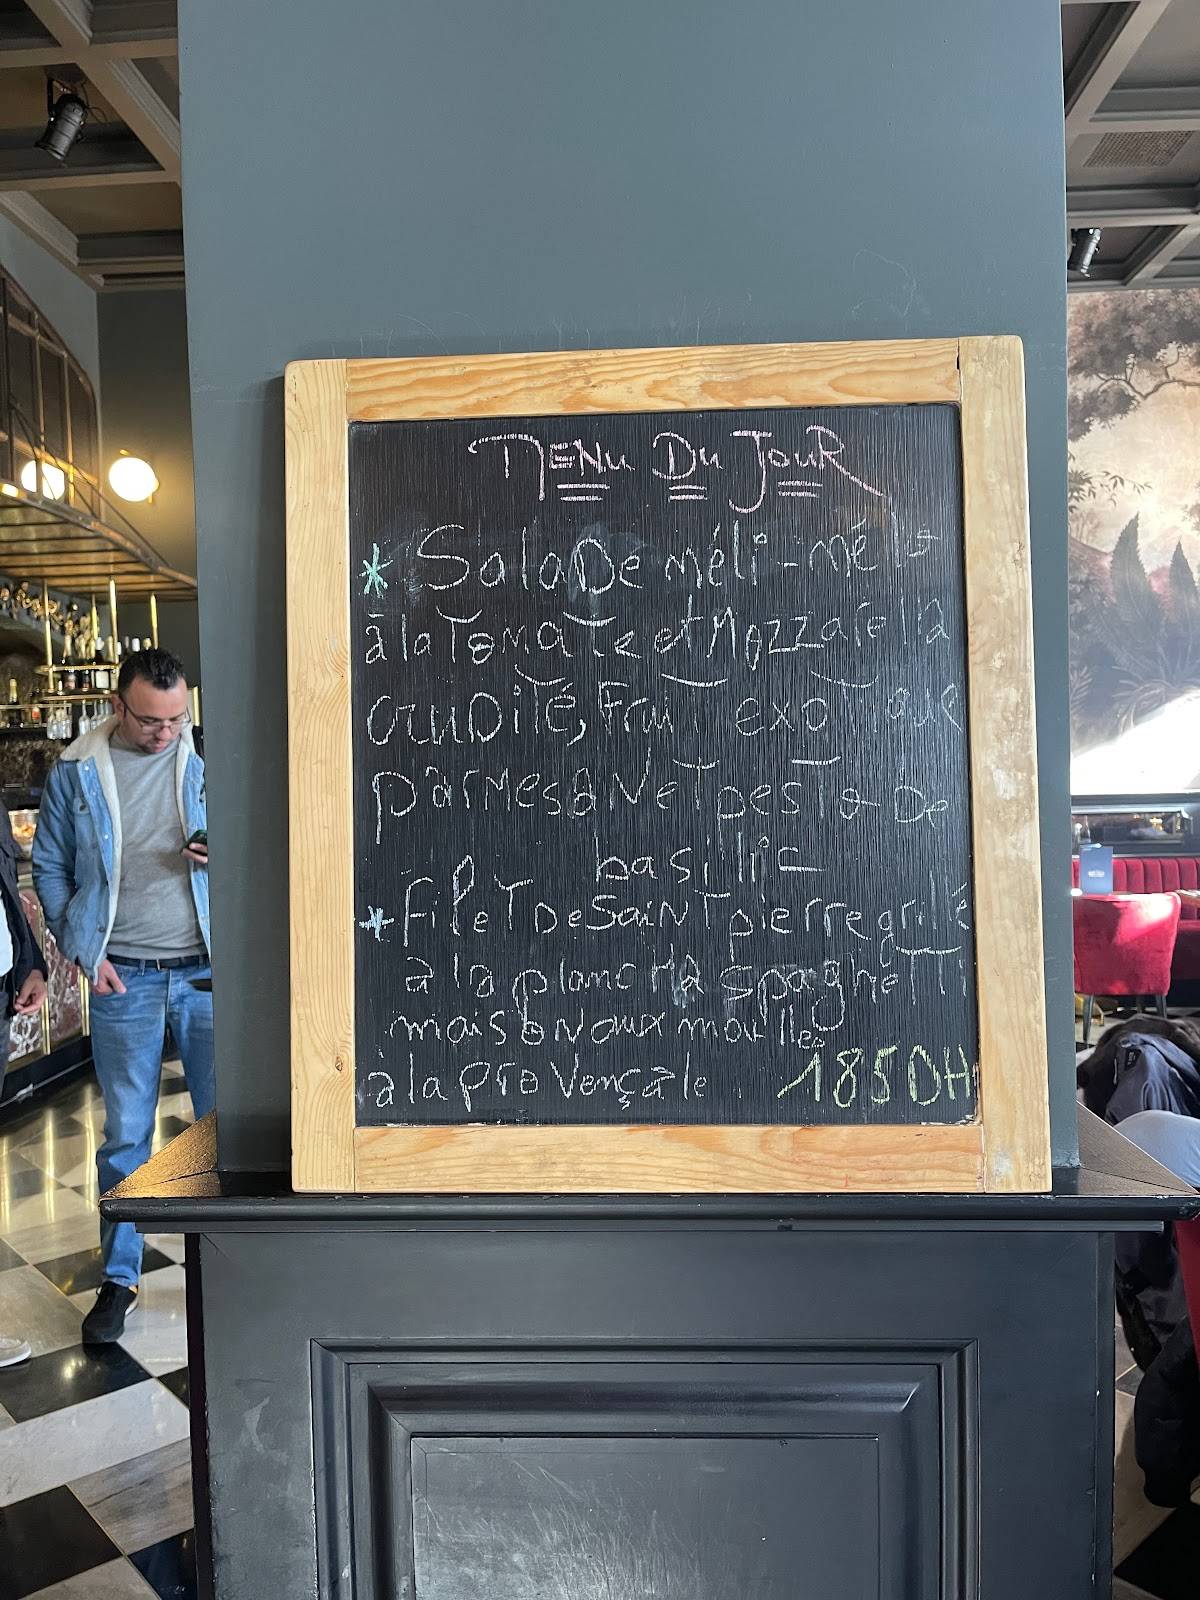 MENU DU JOUR
* Salade méli-mélo
à la Tomate et Mozzarella
crudité, Fruit exotique
parmesan et pesto de
basilic
* Filet de Saint pierre grillé
à la plancha spaghetti
maison aux moulles
à la provençale. 185DH